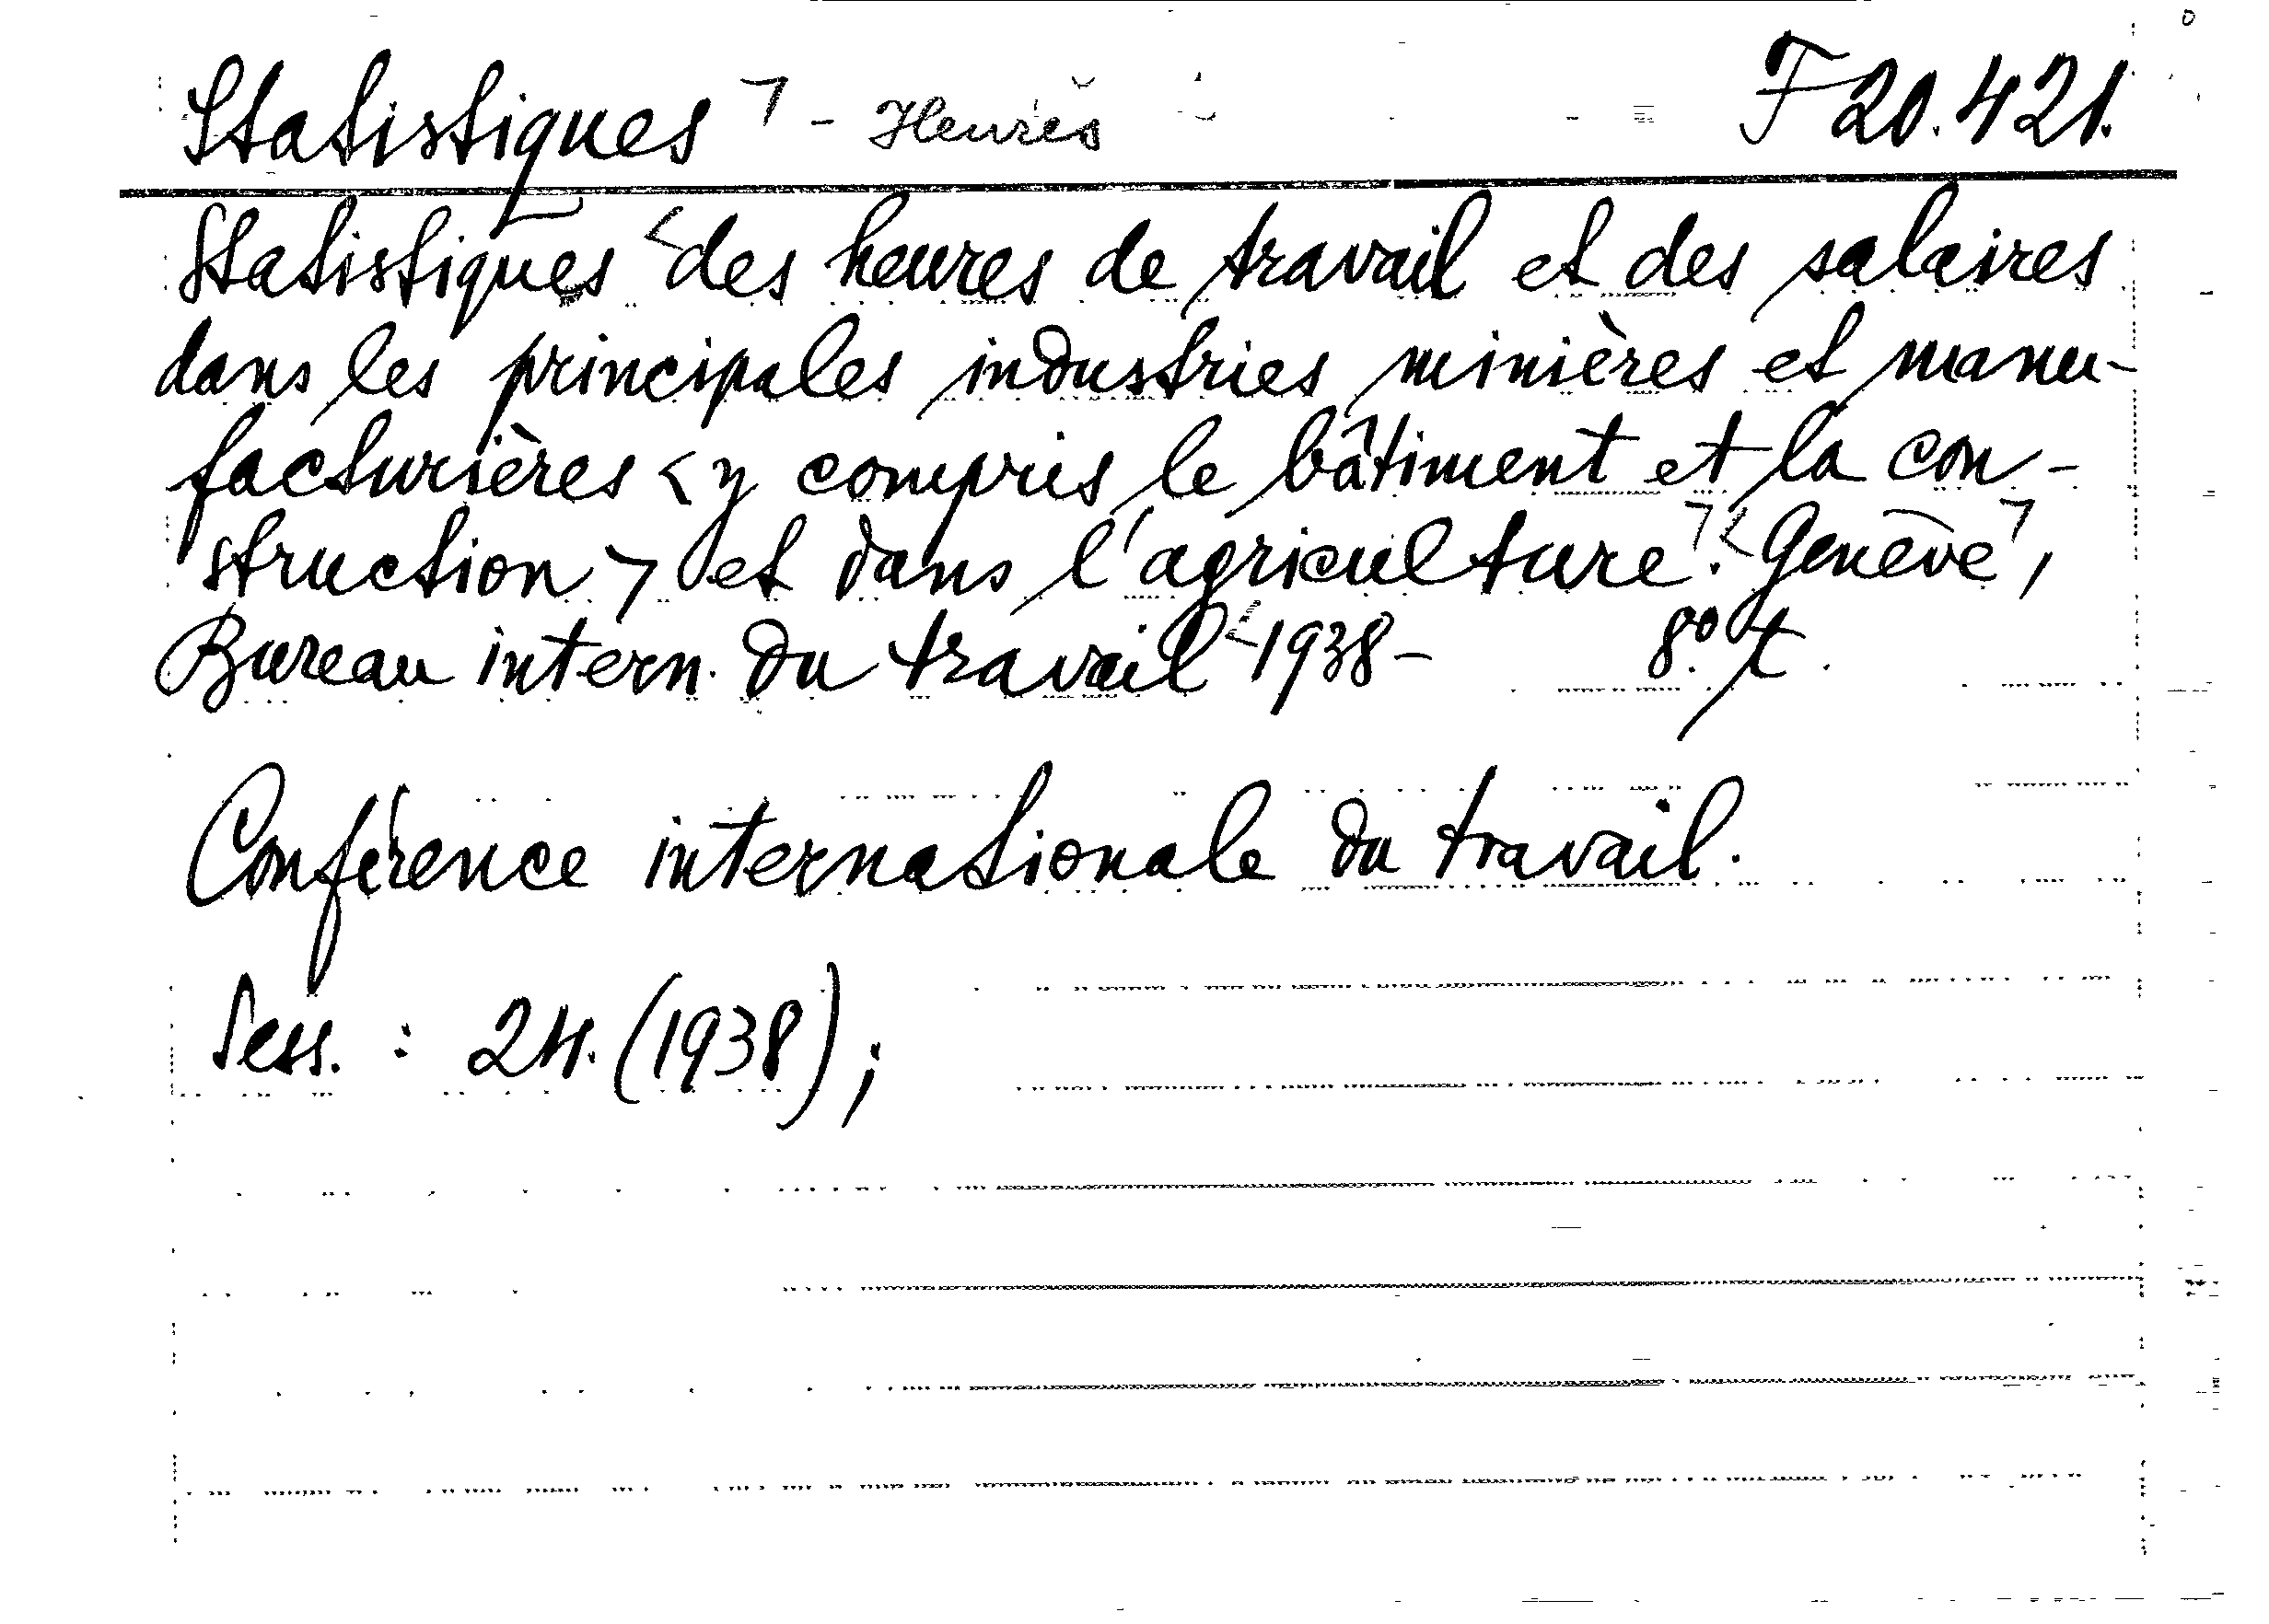 Statistiques - Heures F 20.421.
Statistiques <des heures de travail et des salaires
dans les principales industries minières et manu-
facturières <y compris le bâtiment et la con-
struction> et dans l'agriculture>. <Genève>,
Bureau intern. du travail <1938- 8° t.
Conférence internationale du travail.
Sess. : 24. (1938) ;